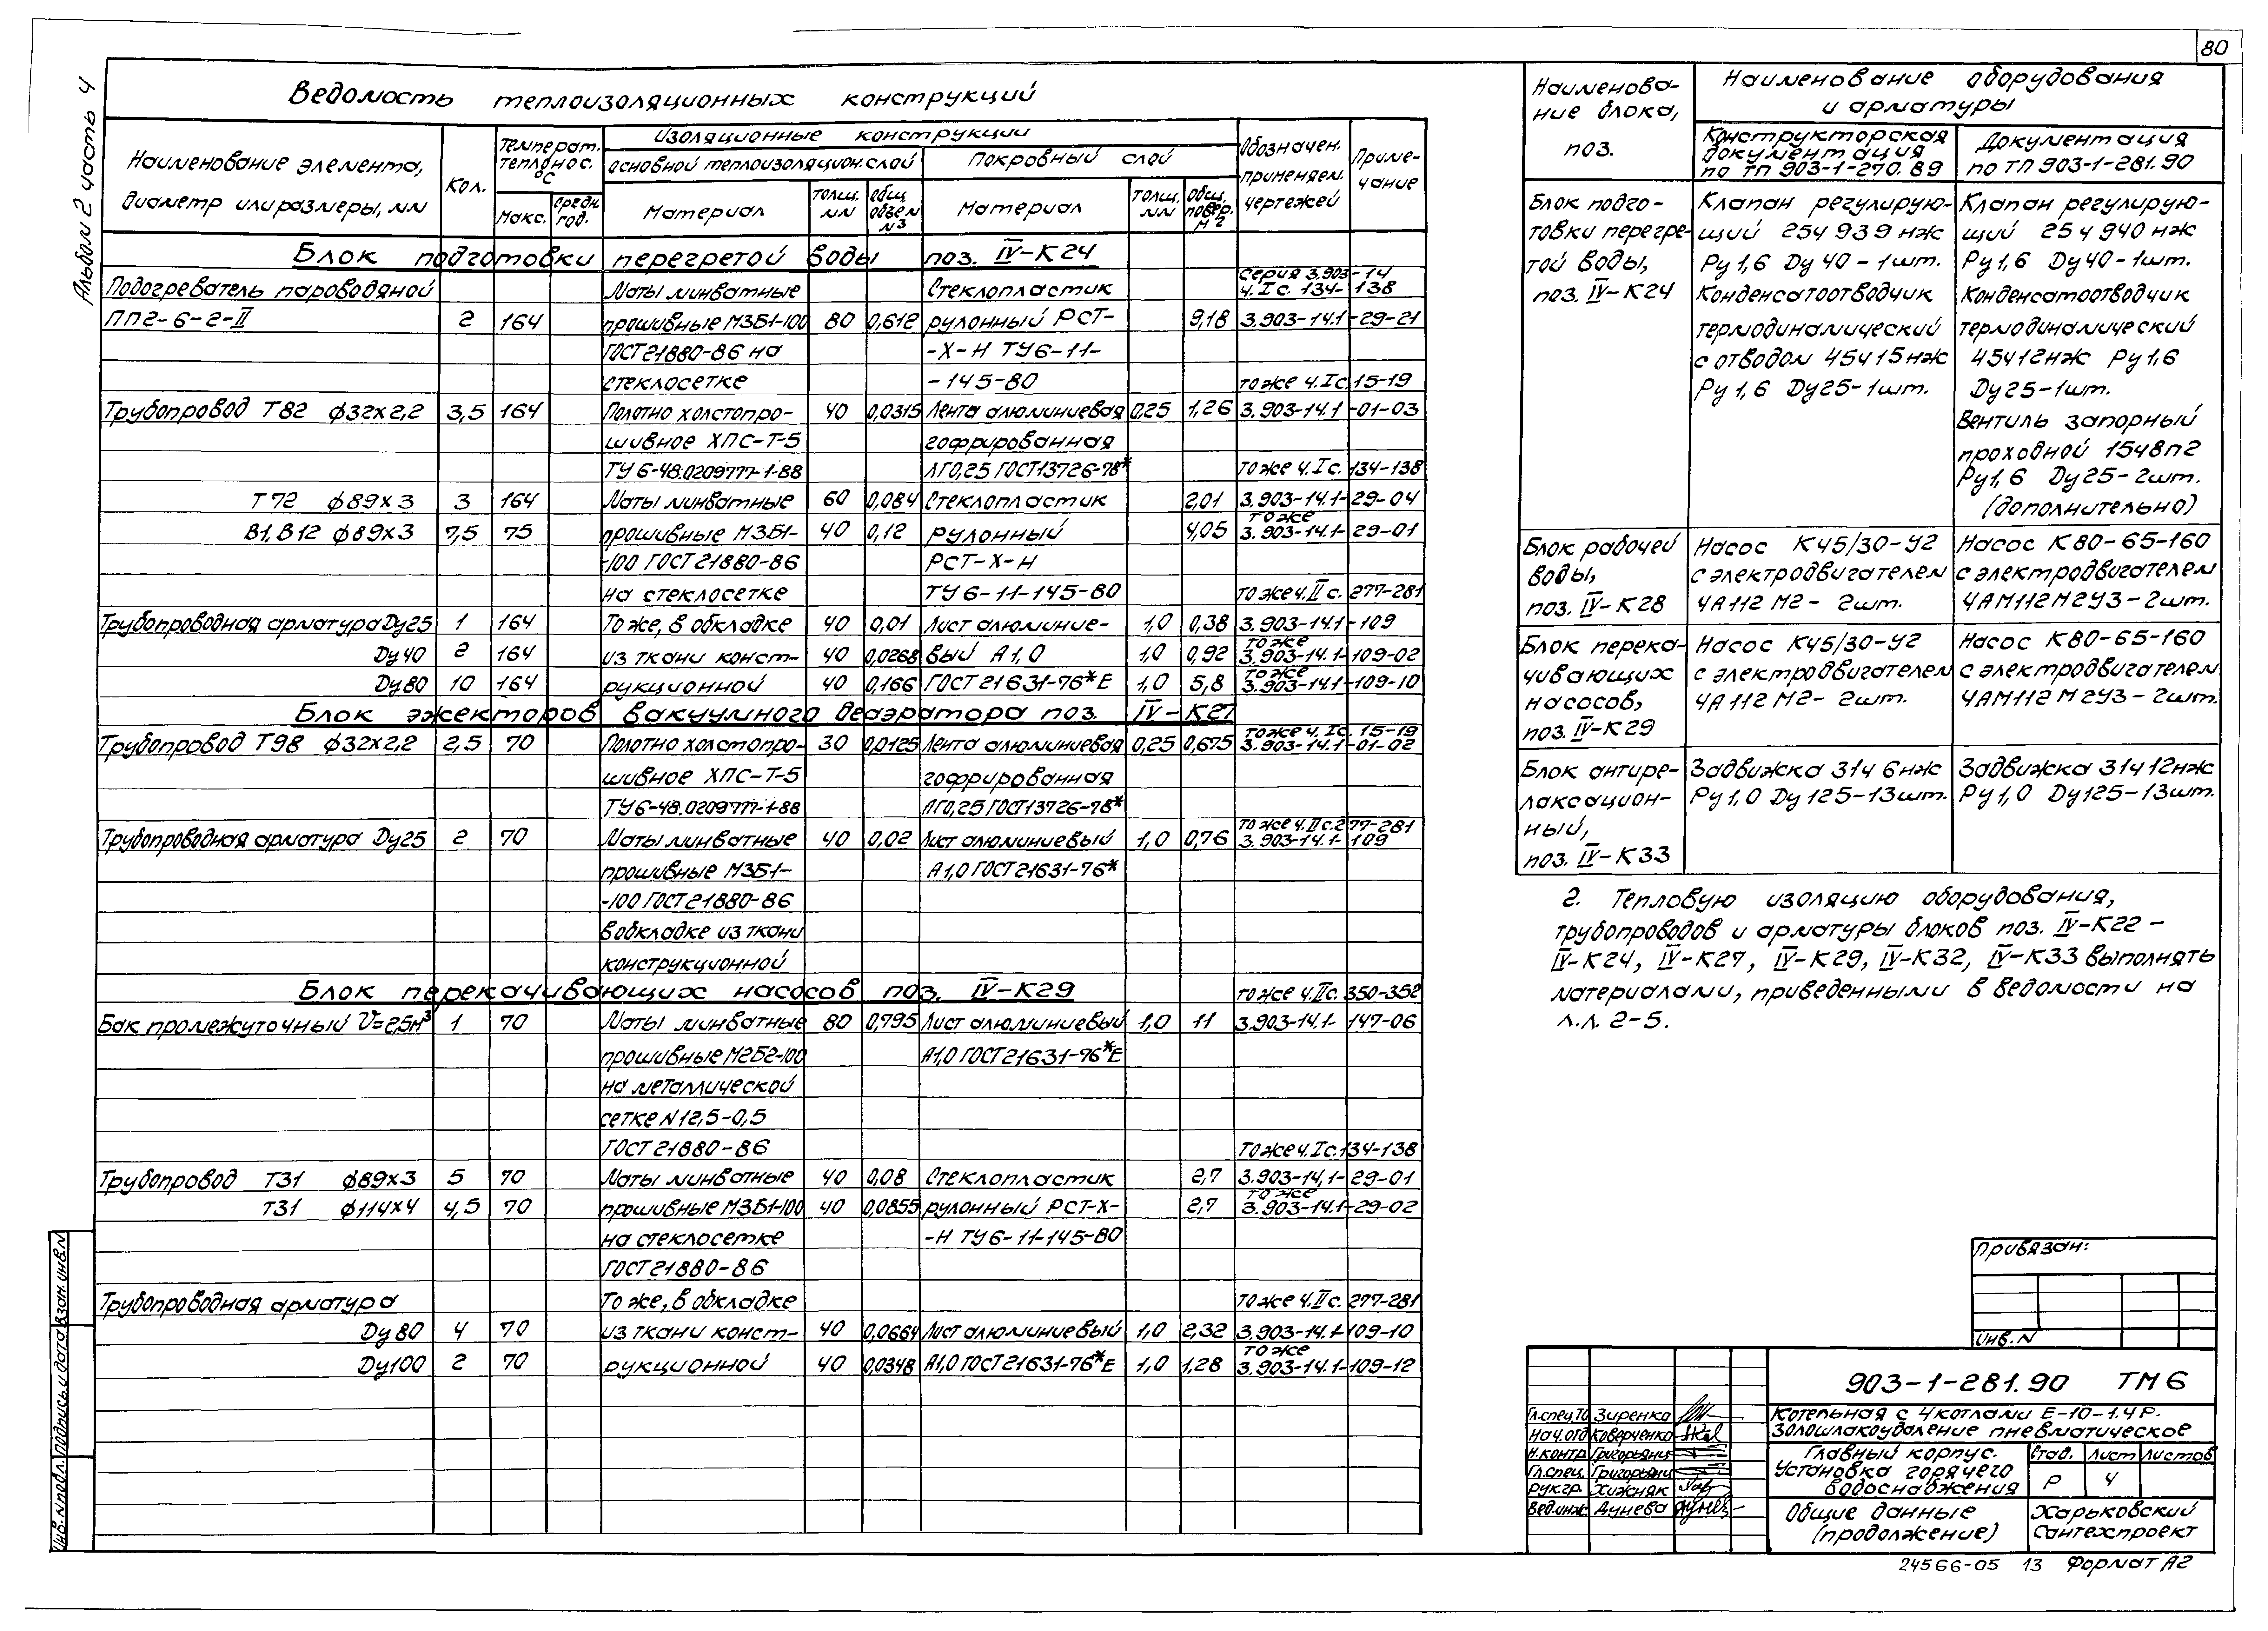 80
Альбом 2 часть 4
Ведомость теплоизоляционных конструкций
Наименование элемента, диаметр или размеры, мм
Кол.
Температ. теплонос. °С
Макс.
средн. год.
Изоляционные конструкции
основной теплоизоляцион. слой
Покровный слой
Материал
толщ. мм
общ. объем м3
Материал
толщ. мм
общ. повер. м2
Обозначен. применяем. чертежей
Примечание
Блок подготовки перегретой воды поз. IV-К24
Подогреватель пароводяной Маты минватные Стеклопластик серия 3.903-14 ч. I с. 134-138
ПП2-6-2-II 2 164 прошивные М3Б1-100 80 0,612 рулонный РСТ- 9,18 3.903-14.1-29-21
ГОСТ 21880-86 на -Х-Н ТУ6-11-
стеклосетке -145-80 то же ч. I с. 15-19
Трубопровод Т82 ф32х2,2 3,5 164 Полотно холстопро- 40 0,0315 Лента алюминиевая 0,25 1,26 3.903-14.1-01-03
шивное ХПС-Т-5 гофрированная
ТУ 6-48.0209777-1-88 ЛГ0,25 ГОСТ13726-78* то же ч. I с. 134-138
Т72 ф89х3 3 164 Маты минватные 60 0,084 Стеклопластик 2,01 3.903-14.1-29-04
В1, В12 ф89х3 7,5 75 прошивные М3Б1- 40 0,12 рулонный 4,05 то же 3.903-14.1-29-01
-100 ГОСТ 21880-86 РСТ-Х-Н
на стеклосетке ТУ 6-11-145-80 то же ч. II с. 277-281
Трубопроводная арматура Dу25 1 164 То же, в обкладке 40 0,01 Лист алюминие- 1,0 0,38 3.903-14.1-109
Dу40 2 164 из ткани конст- 40 0,0268 вый А1,0 1,0 0,92 то же 3.903-14.1-109-02
Dу80 10 164 рукционной 40 0,166 ГОСТ 21631-76*Е 1,0 5,8 то же 3.903-14.1-109-10
Блок эжекторов вакуумного деаэратора поз. IV-К27
Трубопровод Т98 ф32х2,2 2,5 70 Полотно холстопро- 30 0,0125 Лента алюминиевая 0,25 0,675 то же ч. I с. 15-19 3.903-14.1-01-02
шивное ХПС-Т-5 гофрированная
ТУ6-48.0209777-1-88 ЛГ0,25 ГОСТ13726-78*
Трубопроводная арматура Dу25 2 70 Маты минватные 40 0,02 Лист алюминиевый 1,0 0,76 то же ч. II с. 277-281 3.903-14.1-109
прошивные М3Б1- А1,0 ГОСТ 21631-76*
-100 ГОСТ 21880-86
в обкладке из ткани
конструкционной
Блок перекачивающих насосов поз. IV-К29 то же ч. II с. 350-352
Бак промежуточный V=2,5м³ 1 70 Маты минватные 80 0,795 Лист алюминиевый 1,0 11 3.903-14.1-147-06
прошивные М2Б2-100 А1,0 ГОСТ 21631-76*Е
на металлической
сетке N12,5-0,5
ГОСТ 21880-86 то же ч. I с. 134-138
Трубопровод Т31 ф89х3 5 70 Маты минватные 40 0,08 Стеклопластик 2,7 3.903-14,1-29-01
Т31 ф114х4 4,5 70 прошивные М3Б1-100 40 0,0855 рулонный РСТ-Х- 2,7 то же 3.903-14.1-29-02
на стеклосетке -Н ТУ6-11-145-80
ГОСТ 21880-86
Трубопроводная арматура То же, в обкладке то же ч. II с. 277-281
Dу80 4 70 из ткани конст- 40 0,0664 Лист алюминиевый 1,0 2,32 3.903-14.1-109-10
Dу100 2 70 рукционной 40 0,0348 А1,0 ГОСТ 21631-76*Е 1,0 1,28 то же 3.903-14.1-109-12
Наименова-
ние блока,
поз.
Наименование оборудования
и арматуры
Конструкторская
документация
по ТП 903-1-270.89
Документация
по ТП 903-1-281.90
Блок подго-
товки перегре-
той воды,
поз. IV-К24
Клапан регулирую-
щий 25ч 939 нж
Ру1,6 Dу 40-1шт.
Конденсатоотводчик
термодинамический
с отводом 45ч 15нж
Ру 1,6 Dу25-1шт.
Клапан регулирую-
щий 25ч 940 нж
Ру1,6 Dу40-1шт.
Конденсатоотводчик
термодинамический
45ч12нж Ру1,6
Dу25-1шт.
Вентиль запорный
проходной 15ч8п2
Ру1,6 Dу25-2шт.
(дополнительно)
Блок рабочей
воды,
поз. IV-К28
Насос К45/30-У2
с электродвигателем
4А112 М2- 2шт.
Насос К80-65-160
с электродвигателем
4АМ112М2У3-2шт.
Блок перека-
чивающих
насосов,
поз. IV-К29
Насос К45/30-У2
с электродвигателем
4А112 М2- 2шт.
Насос К80-65-160
с электродвигателем
4АМ112М2У3-2шт.
Блок антире-
лаксацион-
ный,
поз. IV-К33
Задвижка 31ч 6нж
Ру1,0 Dу125-13шт.
Задвижка 31ч12нж
Ру1,0 Dу125-13шт.
2. Тепловую изоляцию оборудования,
трубопроводов и арматуры блоков поз. IV-К22 -
IV-К24, IV-К27, IV-К29, IV-К32, IV-К33 выполнять
материалами, приведенными в ведомости на
л.л. 2-5.
Привязан:
Инв. N
903-1-281.90 ТМ6
Котельная с 4 котлами Е-10-1.4Р.
Золошлакоудаление пневматическое
Главный корпус.
Установка горячего
водоснабжения
Стад. Лист Листов
Р 4
Общие данные
(продолжение)
Харьковский
Сантехпроект
Гл.спец.ТО Зиренко
Нач.отд Коверченко
Н.контр. Григорьянц
Гл.спец. Григорьянц
рук.гр. Хижняк
Вед.инж. Дунева
Инв. N подл. Подпись и дата Взам. инв. N
24566-05 13 Формат А2